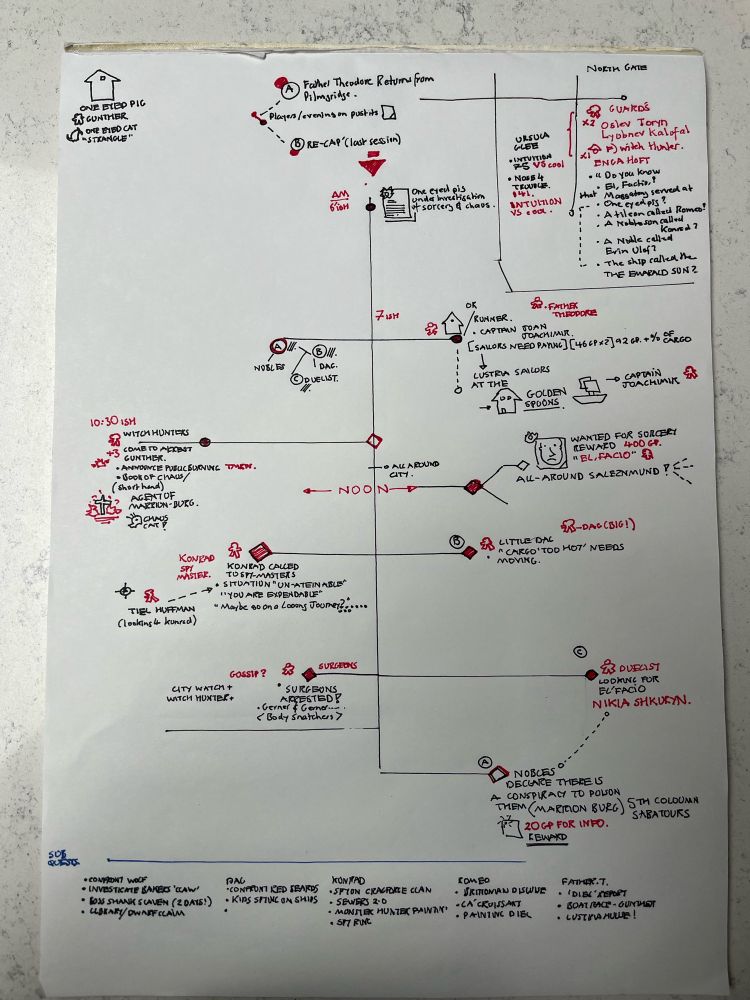 ONE EYED PIG
GUNTHER
ONE EYED CAT
"STRANGLE"
A
Father Theodore Returns from
Pilmgridge.
Players/evening on pustits
B
RE-CAP (last session)
AM
6ish
One eyed pig
under investigation
of sorcery & chaos.
NORTH GATE
GUARDS
x2 Oslev Toryn
Lyobnev Kalofal
x1 (F) witch Hunter.
ENGA HOFT
URSULA
GLEE
• INTUITION
VS cool
• NODE 4
TROUBLE.
INTUITION
VS cool.
• "Do you know
El, Factio,?
that Maggotty served at
• One eyed pig?
• A tilean called Romeo?
• A Nobbason called
Konrad?
• A Noble called
Erin Ulof?
• The ship called the
THE EMERALD SUN?
7 ISH
OR
RUNNER.
FATHER
THEODORE
• CAPTAIN JOAN
JOACHIMIR.
[SAILORS NEED PAYING] [46 GP x 2] 92 GP. + % OF
CARGO
LUSTRIA SAILORS
AT THE
GOLDEN
SPOONS.
CAPTAIN
JOACHIMIR
A
NOBLES
B
DAG.
C
DUELIST.
10:30 ISH
WITCH HUNTERS
+3 COME TO ARREST
GUNTHER.
• ANNOUNCE PUBLIC BURNING TMEW.
• BOOK OF CHAOS/
(short hand)
AGENT OF
MARRION-BURG.
CHAOS
CAT?
• ALL AROUND
CITY.
NOON
WANTED FOR SORCERY
REWARD 400 GP.
"EL, FACIO"
ALL-AROUND SALEZNMUND?
KONRAD
SPY
MASTER.
KONRAD CALLED
TO SPY-MASTERS
• SITUATION "UN-ATEINABLE"
"YOU ARE EXPENDABLE"
"Maybe go on a Looong Journey?"
TIEL HUFFMAN
(looking 4 Kunrad)
B
DAG (BIG!)
LITTLE DAG
• "CARGO 'TOO HOT' NEEDS
MOVING.
GOSSIP?
SURGEONS
CITY WATCH +
WITCH HUNTER+
• SURGEONS
ARRESTED?
• Gerner & Gerner....
< Body Snatchers >
C
DUELIST
LOOKING FOR
EL'FACIO
NIKIA SHKURYN.
A
NOBLES
DECLARE THERE IS
A CONSPIRACY TO POISON
THEM (MARRION BURG) 5TH COLOUMN
SABATOURS
20 GP FOR INFO.
REWARD
SUB
QUESTS
• CONFRONT WOLF
• INVESTIGATE BAKERS 'CLAW'
• BOSS SHANK SLAVEN (2 DAYS!)
• LIBRARY/DWARF CLAIM
DAG
• CONFRONT RED BEARDS
• KIDS SPYING ON SHIPS
•
KONRAD
• SPY ON CRAGFORGE CLAN
• SEWERS 2.0
• MONSTER HUNTER PAINTIN'
• SPY RING
ROMEO
• BRITIONIAN DISGUISE
• CA'CROISSANT
• PAINTING DIEL
FATHER.T.
• 'DIEL' REPORT
• BOAT RACE - GUNTHER
• LUSTRIA HULLE!